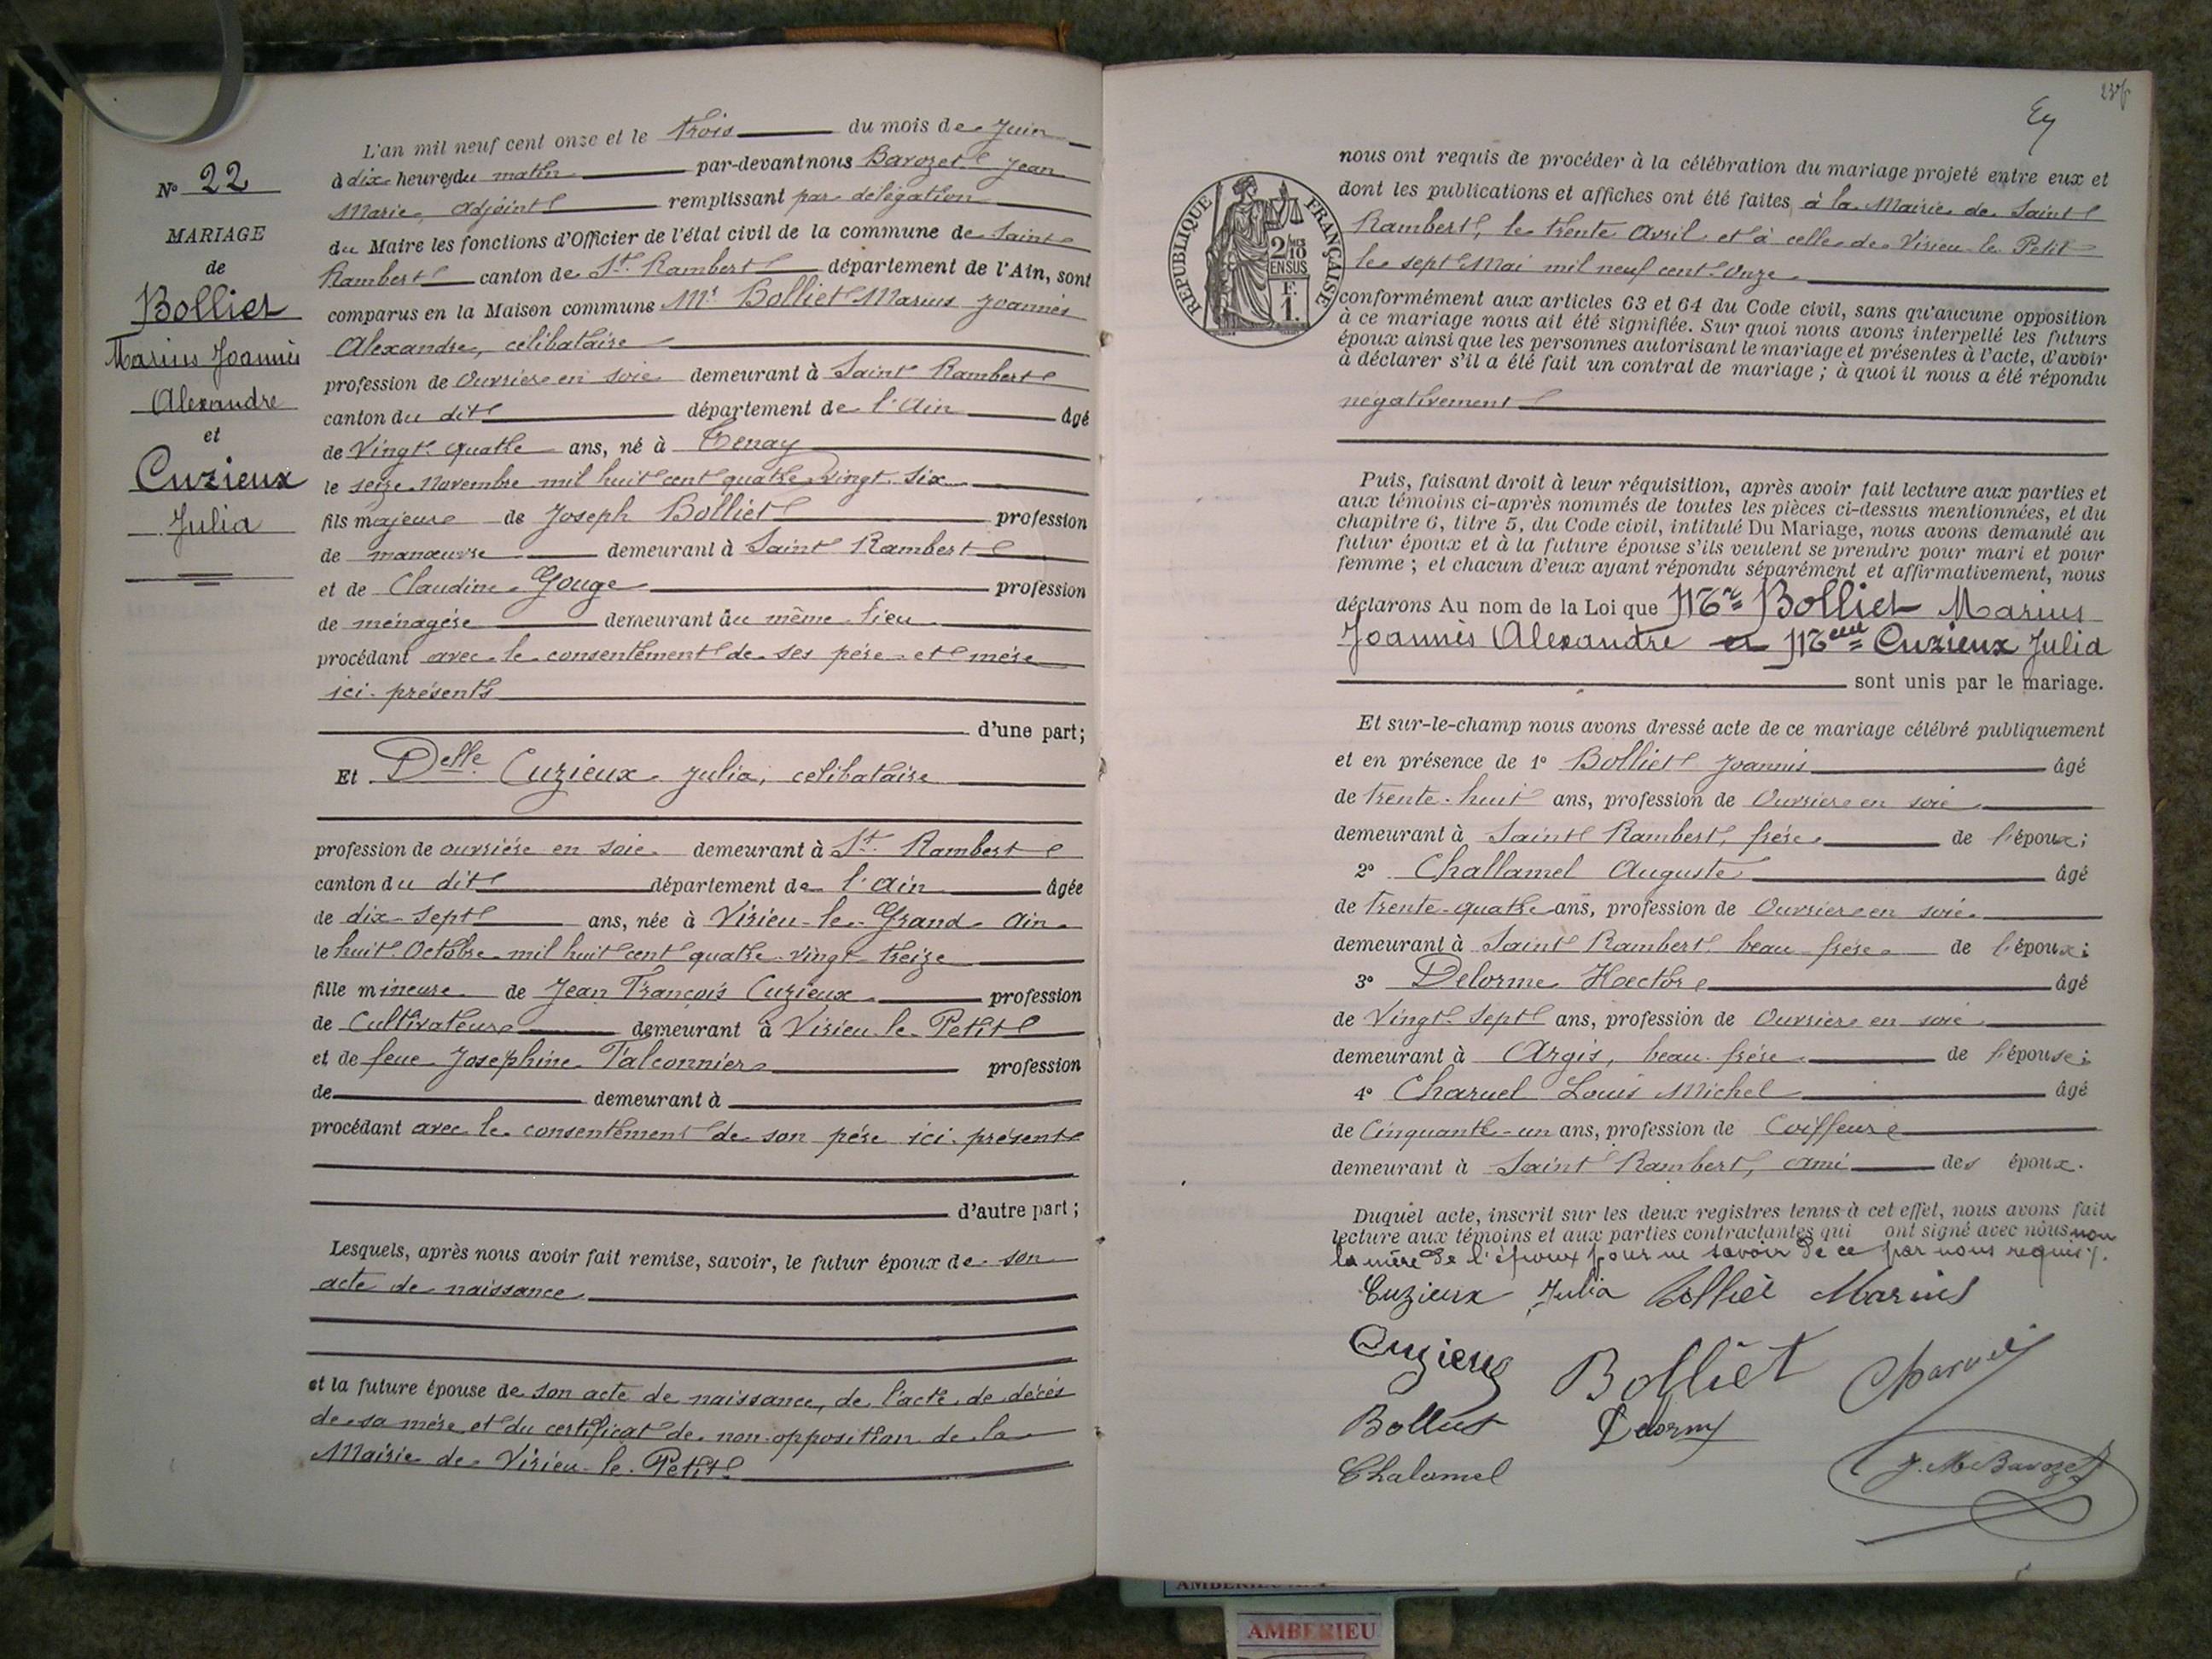 N° 22
MARIAGE
de
Bolliet
Marius Joannès
Alexandre
et
Cuzieux
Julia
L'an mil neuf cent onze et le trois du mois de Juin
à dix heures du matin par-devant nous Barozet Jean
Marie, Adjoint remplissant par délégation
du Maire les fonctions d'Officier de l'état civil de la commune de Saint
Rambert canton de St Rambert département de l'Ain, sont
comparus en la Maison commune Mr Bolliet Marius Joannès
Alexandre, célibataire
profession de Ouvrier en soie demeurant à Saint Rambert
canton du dit département de l'Ain âgé
de Vingt quatre ans, né à Tenay
le seize Novembre mil huit cent quatre vingt six
fils majeur de Joseph Bolliet profession
de manœuvre demeurant à Saint Rambert
et de Claudine Gouge profession
de ménagère demeurant au même lieu
procédant avec le consentement de ses père et mère
ici présents
d'une part;
Et Delle Cuzieux Julia, celibataire
profession de ouvrière en soie demeurant à St Rambert
canton du dit département de l'Ain âgée
de dix-sept ans, née à Virieu-le-Grand Ain
le huit Octobre mil huit cent quatre vingt treize
fille mineure de Jean François Cuzieux profession
de Cultivateur demeurant à Virieu-le-Petit
et de feue Joséphine Falconnier profession
de demeurant à
procédant avec le consentement de son père ici présent
d'autre part;
Lesquels, après nous avoir fait remise, savoir, le futur époux de son
acte de naissance
et la future épouse de son acte de naissance, de l'acte de décès
de sa mère et du certificat de non opposition de la
Mairie de Virieu-le-Petit
RÉPUBLIQUE FRANÇAISE
2/10
EN SUS
F.
1.
nous ont requis de procéder à la célébration du mariage projeté entre eux et
dont les publications et affiches ont été faites à la Mairie de Saint
Rambert, le trente Avril et à celle de Virieu-le-Petit
le sept Mai mil neuf cent onze
conformément aux articles 63 et 64 du Code civil, sans qu'aucune opposition
à ce mariage nous ait été signifiée. Sur quoi nous avons interpellé les futurs
époux ainsi que les personnes autorisant le mariage et présentes à l'acte, d'avoir
à déclarer s'il a été fait un contrat de mariage; à quoi il nous a été répondu
négativement
Puis, faisant droit à leur réquisition, après avoir fait lecture aux parties et
aux témoins ci-après nommés de toutes les pièces ci-dessus mentionnées, et du
chapitre 6, titre 5, du Code civil, intitulé Du Mariage, nous avons demandé au
futur époux et à la future épouse s'ils veulent se prendre pour mari et pour
femme; et chacun d'eux ayant répondu séparément et affirmativement, nous
déclarons Au nom de la Loi que Mr Bolliet Marius
Joannès Alexandre et Melle Cuzieux Julia
sont unis par le mariage.
Et sur-le-champ nous avons dressé acte de ce mariage célébré publiquement
et en présence de 1° Bolliet Joannis âgé
de trente-huit ans, profession de Ouvrier en soie
demeurant à Saint Rambert, frère de l'époux;
2° Challamel Auguste âgé
de trente-quatre ans, profession de Ouvrier en soie
demeurant à Saint Rambert beau frère de l'époux;
3° Delorme Hector âgé
de Vingt Sept ans, profession de Ouvrier en soie
demeurant à Argis, beau frère de l'épouse;
4° Charuel Louis Michel âgé
de Cinquante-un ans, profession de Coiffeur
demeurant à Saint Rambert, ami des époux.
Duquel acte, inscrit sur les deux registres tenus à cet effet, nous avons fait
lecture aux témoins et aux parties contractantes qui ont signé avec nous non
la mère de l'époux pour ne savoir de ce par nous requis.
Cuzieux Julia Bolliet Marius
Cuzieux Bolliet Charuel
Bolliet Delorme
Chalamel J. M. Barozet
AMBERIEU